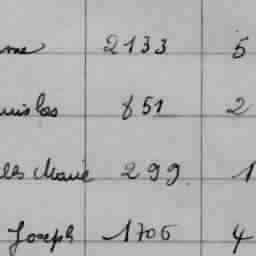 me 2133 5
uislas 851 2
les Marie 299 1
Joseph 1706 4